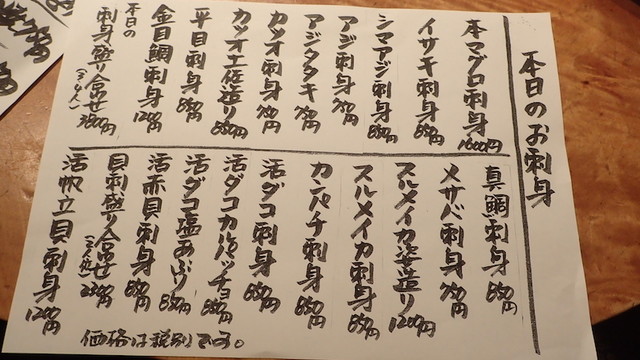 本日のお刺身
本マグロ刺身 1600円
イサキ刺身 850円
シマアジ刺身 880円
アジ刺身 750円
アジタタキ 750円
カツオ刺身 750円
カツオ土佐造り 850円
平目刺身 850円
金目鯛刺身 1200円
本日の刺身盛り合せ (3〜4人) 3800円
真鯛刺身 850円
〆サバ刺身 750円
スルメイカ姿造り 1200円
スルメイカ刺身 850円
カンパチ刺身 850円
活ダコ刺身 850円
活ダコカルパッチョ 850円
活ダコ塩あぶり 850円
活赤貝刺身 850円
貝刺盛り合せ 2300円
活帆立貝刺身 1200円
価格は税別です。